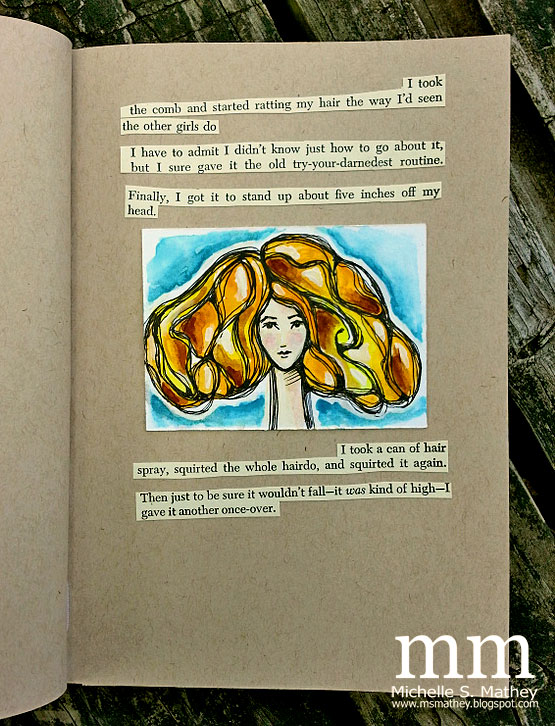 I took
the comb and started ratting my hair the way I'd seen
the other girls do
I have to admit I didn't know just how to go about it,
but I sure gave it the old try-your-darnedest routine.
Finally, I got it to stand up about five inches off my
head.
I took a can of hair
spray, squirted the whole hairdo, and squirted it again.
Then just to be sure it wouldn't fall—it was kind of high—I
gave it another once-over.
mm
Michelle S. Mathey
www.msmathey.blogspot.com